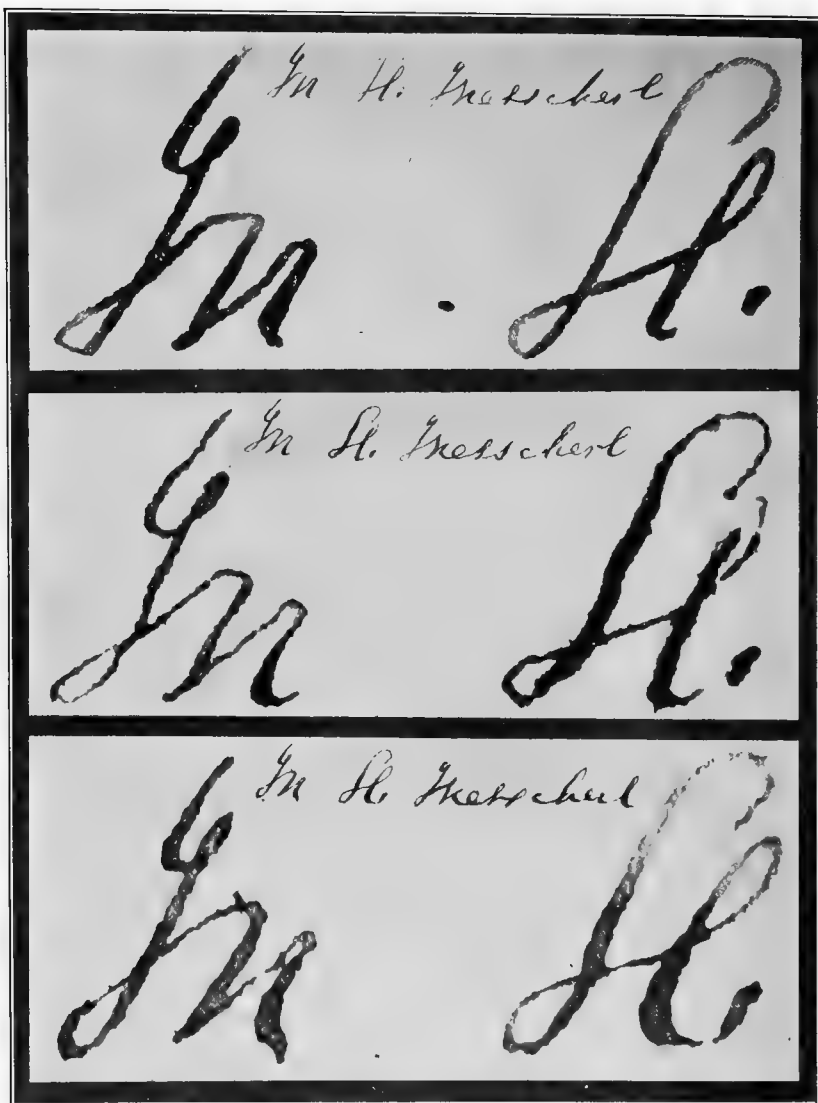 M H. Messchert
M H.
M H. Messchert
M H.
M H. Messchert
M H.